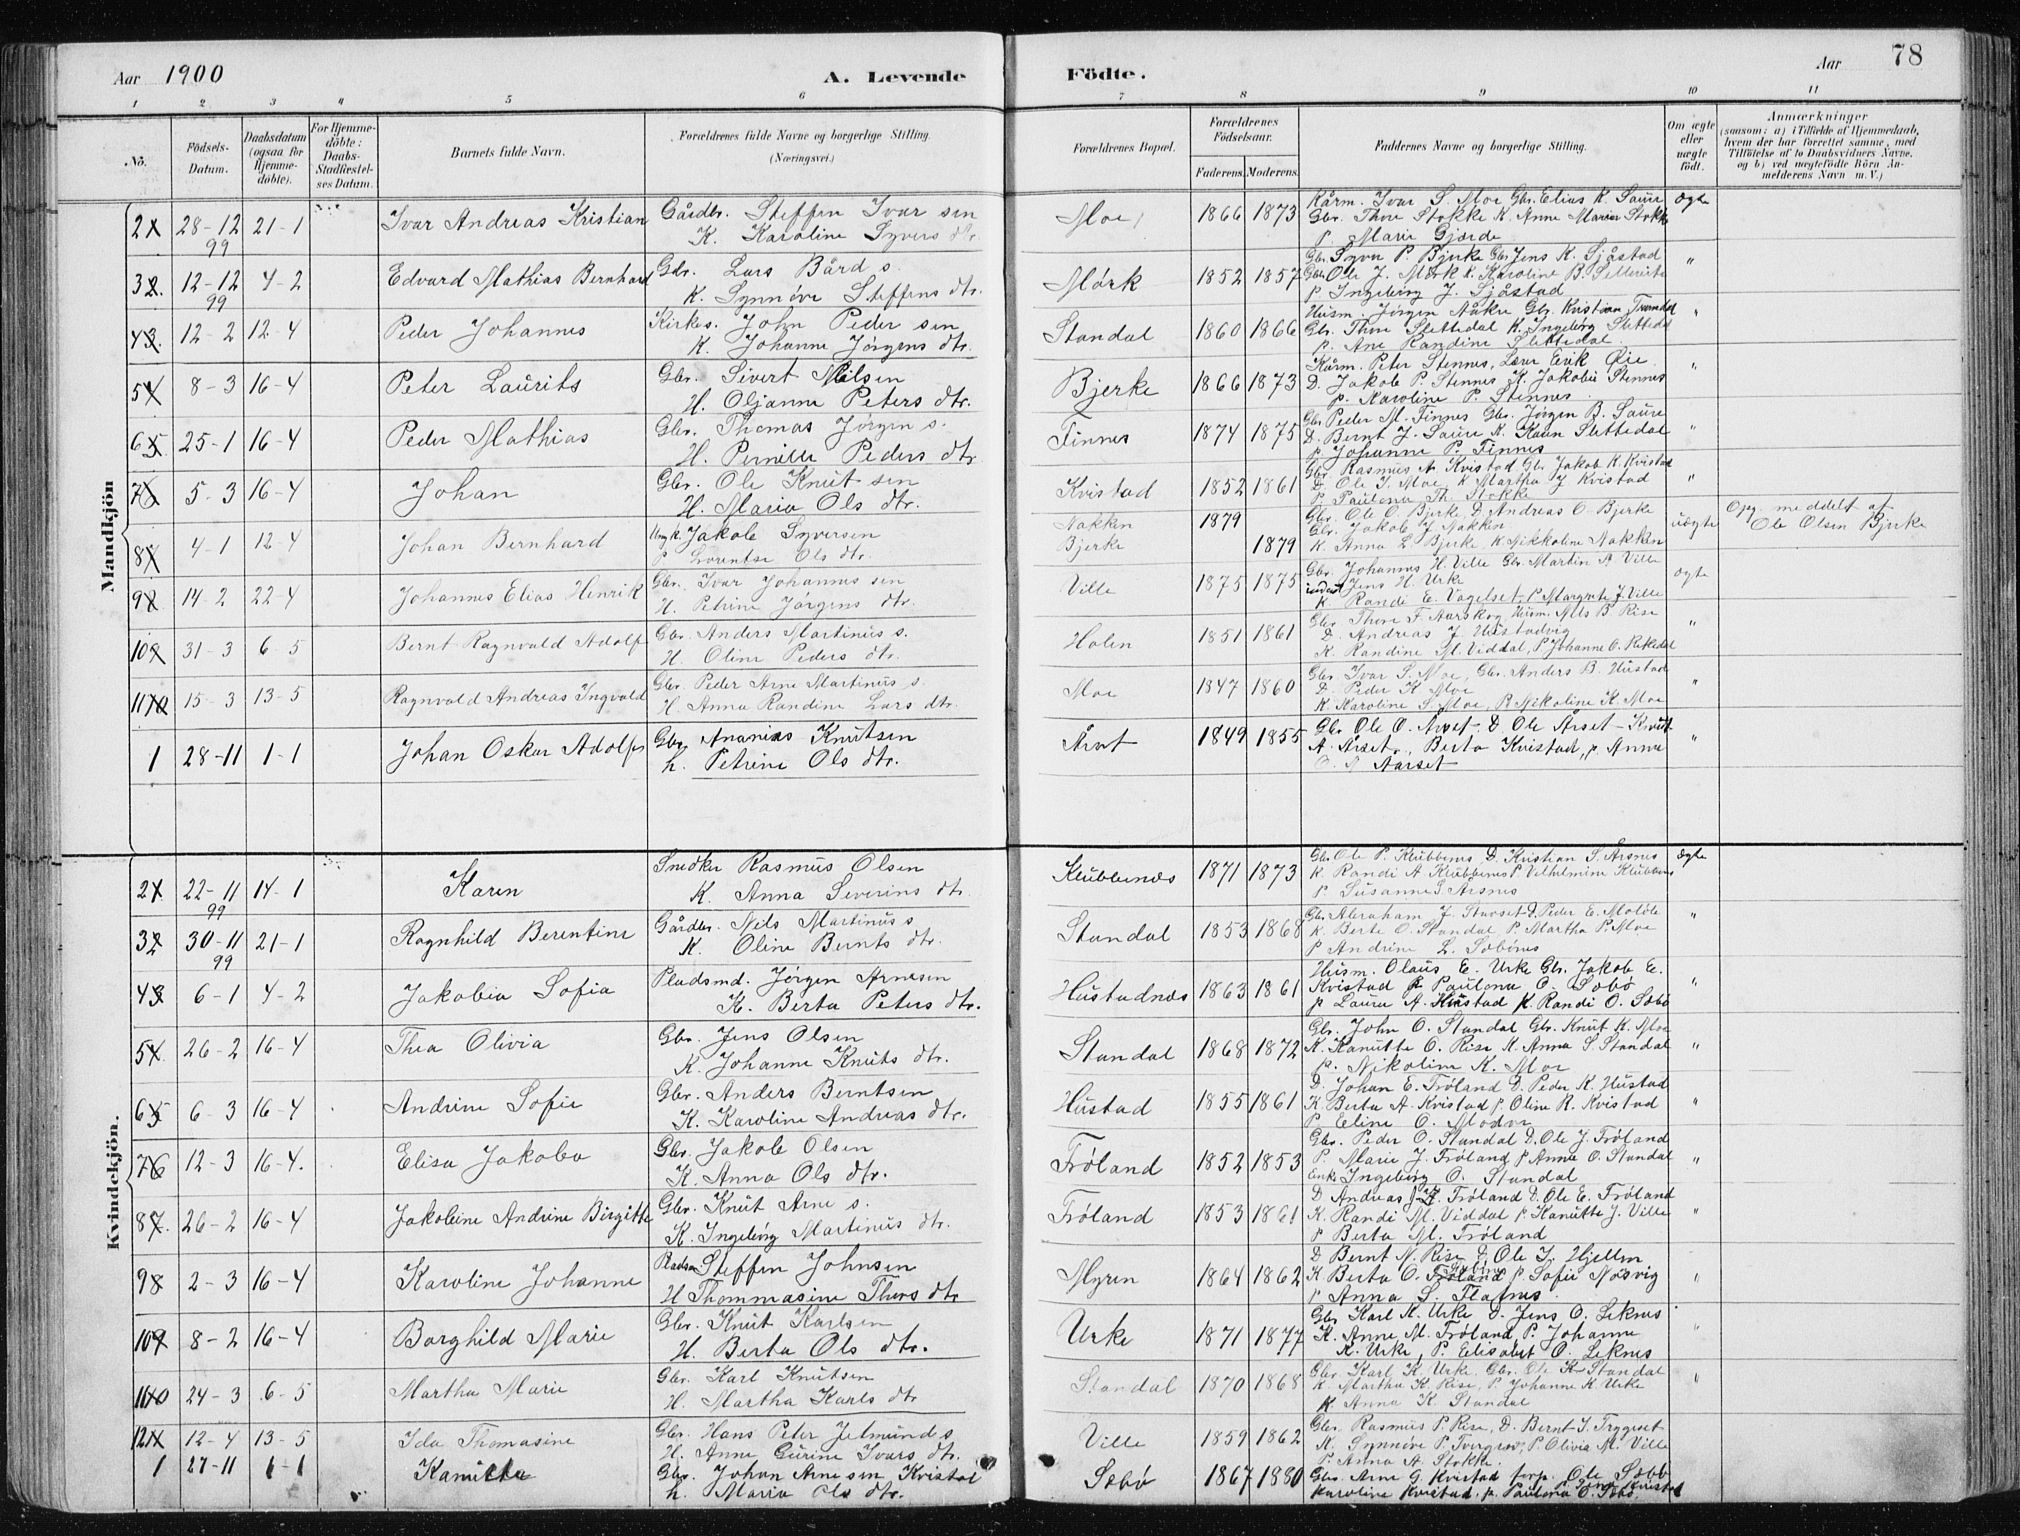 Aar 1900
A. Levende Födte.
Aar 78
1 2 3 4 5 6 7 8 9 10 11
No.
Födsels-Datum.
Daabsdatum (ogsaa for Hjemme-döbte).
For Hjemme-döbte: Daabs-Stadfæstel-ses Datum.
Barnets fulde Navn.
Forældrenes fulde Navne og borgerlige Stilling. (Næringsvei.)
Forældrenes Bopæl.
Forældrenes Födselsaar.
Faderens. Moderens.
Faddernes Navne og borgerlige Stilling.
Om ægte eller uægte födt.
Anmærkninger
(saasom: a) i Tilfælde af Hjemmedaab, hvem der har forrettet samme, med Tilföielse af to Daabsvidners Navne, og b) ved uægtefödte Börn An-melderens Navn m. V.)
Mandkjön
2 28-12 99 21-1 Ivar Andreas Kristian Gårdbr. Steffen Ivar sen Moe 1866 1873 Kårm. Ivar S. Moe Gbr. Elias K. Saure ægte
K. Karoline Syvers dtr. Gbr. Thore Stokke K. Anne Marie Stokke
p. Marie Gjærde
3 12-12 99 4-2 Edvard Mathias Bernhard Gbr. Lars Bård s. Mørk 1852 1857 Gbr. Syver P. Bjerke Gbr. Jens K. Sjåstad "
K. Synnöve Steffens dtr. Gbr. Ole J. Mørk K. Karoline B.
p. Ingeborg J. Sjåstad
4 12-2 12-4 Peder Johannes Kirkes. John Peder sen Standal 1860 1866 Husm. Jörgen Nåkre Gbr. Kristian "
K. Johanne Jörgens dtr. Gbr. Thore Slettedal K. Ingeborg Slettedal
p. Ane Randine Slettedal
5 8-3 16-4 Peter Laurits Gbr. Sivert Nilsen Bjerke 1866 1873 Kårm. Peter Stennes, Lær Erik Øie "
H. Oljanne Peters dtr. D. Jakob P. Stennes K. Jakobie Stennes
p. Karoline P. Stennes
6 25-1 16-4 Peder Mathias Gbr. Thomas Jörgen s. Finnes 1874 1875 Gbr. Peder M. Finnes Gbr. Jörgen B. Saure "
H. Pernille Peders dtr. D. Bernt J. Saure K. Karen Slettedal
p Johanne P. Finnes
7 5-3 16-4 Johan Gbr. Ole Knut sen Kvistad 1852 1861 Gbr. Rasmus A. Kvistad Gbr. Jakob K. Kvistad "
H. Maria Ols dtr. D. Ole I. Moe K Martha J Kvistad
P. Paulona Th. Stokke
8 4-1 12-4 Johan Bernhard Ungk. Jakob Syversen Nakken 1879 Gbr. Ole O. Bjerke, D. Andreas O. Bjerke uægte Opg. meddelt af
P Lorentse Ols dtr. Bjerke 1879 Gbr. Jakob J Nakken Ole Olsen Bjerke
K. Anna L. Bjerke, K Nikkoline Nakken
9 14-2 22-4 Johannes Elias Henrik Gbr. Ivar Johannes sen Ville 1875 1875 Gbr. Johannes H. Ville Gbr. Martin A Ville ægte
H. Petrine Jörgens dtr. Jens H. Urke
K. Randi E. Vagelset, P Margrete J. Ville
10 31-3 6-5 Bernt Ragnvald Adolf Gbr. Anders Martinus s. Holen 1851 1861 Gbr Thore F Aarskog Husm. Nils B. Rise "
H. Oline Peders dtr. D. Andreas J Hustadvig
K. Randine M. Viddal, P Johanne O. Rekedal
11 15-3 13-5 Ragnvald Andreas Ingvald Gbr. Peder Arne Martinus s. Moe 1847 1860 Gbr Ivar S. Moe, Gbr. Anders B. Hustad "
H. Anna Randine Lars dtr. D. Peder K Moe
K Karoline S. Moe, P. Nikoline K. Moe
1 28-11 1-1 Johan Oskar Adolf Gbr. Ananias Knutsen Årset 1849 1855 Gbr. Ole O. Årset, D Ole Årset "
h. Petrine Ols dtr. A. Årset, Berta Kvistad, p. Anne
Aarset
Kvindekjön.
2 22-11 99 14-1 Karen Snedker Rasmus Olsen Klubbenæs 1871 1873 Gbr. Ole P. Klubbenes D. Kristian S. Årsnes ægte
K. Anna Severins dtr. K Randi A Klubbenes P Vilhelmine Klubbenes
p Susanne S. Årsnes
3 30-11 99 21-1 Ragnhild Berentine Gårdbr. Nils Martinus s Standal 1853 1868 Gbr. Abraham J. D. Peder E. "
K. Oline Bernts dtr. K Berte O. Standal, P. Martha P. Moe
p Andrine L. Sæbönes
4 6-1 4-2 Jakobia Sofia Pladsmd. Jörgen Arnesen Hustadnæs 1863 1861 Husm. Olaus E. Urke Gbr. Jakob E. "
K. Berta Peters dtr. Kvistad p Paulona O. Sæbö
p Laura A. Hustad K. Randi O. Sæbö
5 26-2 16-4 Thea Olivia Gbr. Jens Olsen Standal 1868 1872 Gbr. John O. Standal Gbr. Knut K. Moe "
K. Johanne Knuts dtr. K. Kanutte O. Rise K. Anna S. Standal
p. Nikoline K. Moe
6 6-3 16-4 Andrine Sofie Gbr. Anders Berntsen Hustad 1855 1861 D. Johan E. Fröland D. Peder K. Hustad "
K. Karoline Andreas dtr. K. Berta A. Kvistad p. Oline R. Kvistad
P Eline O.
7 12-3 16-4. Elisa Jakoba Gbr. Jakob Olsen Fröland 1852 1853 Gbr. Peder O. Standal D. Ole J. Fröland "
K. Anna Ols dtr. P. Marie J. Fröland p Anne O. Standal
Enke Ingeborg O. Standal
8 26-2 16-4 Jakobine Andrine Birgitte Gbr. Knut Arne s. Fröland 1853 1861 D Andreas Fröland D. Ole E. Fröland "
K. Ingeborg Martinus dtr. K. Randi M. Viddal p. Kanutte J. Ville
p Berta M. Fröland
9 2-3 16-4 Karoline Johanne Steffen Johnsen Myren 1864 1862 D Bernt N. Rise D. Ole I. Hjellen "
H Thommasine Thors dtr K Berta O. p. Sofie Nøsvig
p Anna S. Flatnes
10 8-2 16-4 Borghild Marie Gbr. Knut Karlsen Urke 1871 1877 Gbr Karl K. Urke D. Jens O. Leknes "
H. Berta Ols dtr. K. Anne M. Fröland, P. Johanne
K. Urke, P. Elisabet O. Leknes
11 24-3 6-5 Martha Marie Gbr. Karl Knutsen Standal 1870 1868 Gbr. Karl K. Urke. Gbr. Ole K Standal "
H. Martha Karls dtr K. Martha K. Rise, P. Johanne K Urke
K Anna K. Standal
12 12-4 13-5 Ida Thomasine Gbr. Hans Peter Jetmund s Ville 1859 1862 Gbr. Rasmus P. Rise, D. Bernt I. Tryggset
H. Anne Gurine Ivars dtr. K. Synnöve P. P. Olivia M. Ville
P. Anna A Stokke
1 27-11 1-1 Kanutte Gbr. Johan Arne sen Kvistad Sæbö 1867 1880 Gbr. Arne G. Kvistad forp. Ole Sæbö
h. Maria Ols dtr. Karoline Kvistad. p. Paulona O. Sæbö